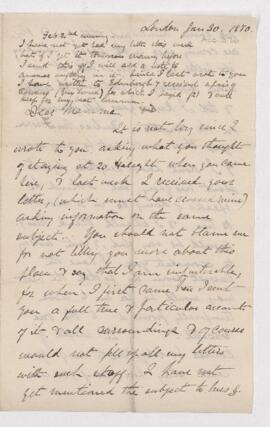 London Jan 30. 1880.
Feb 2nd evening
I have not got my letter this week
but if I get it tomorrow morning before
I send this off I will add a note to
answer anything in it. Since I last wrote to you
I have written to Edinburgh & received
for which I
keep for my next
Dear Mamma
It is not long since I
wrote to you asking what you thought
of staying at 20 when you came
here, & last week I received your
letter, (which must have crossed mine)
asking information on the same
subject. You should not blame me
for not telling you more about this
place & say that I am
for when I first came here I sent
you a full true & particular account
of it & all surroundings & of course
would not fill up all my letters
with such stuff. I have not
yet mentioned the subject to